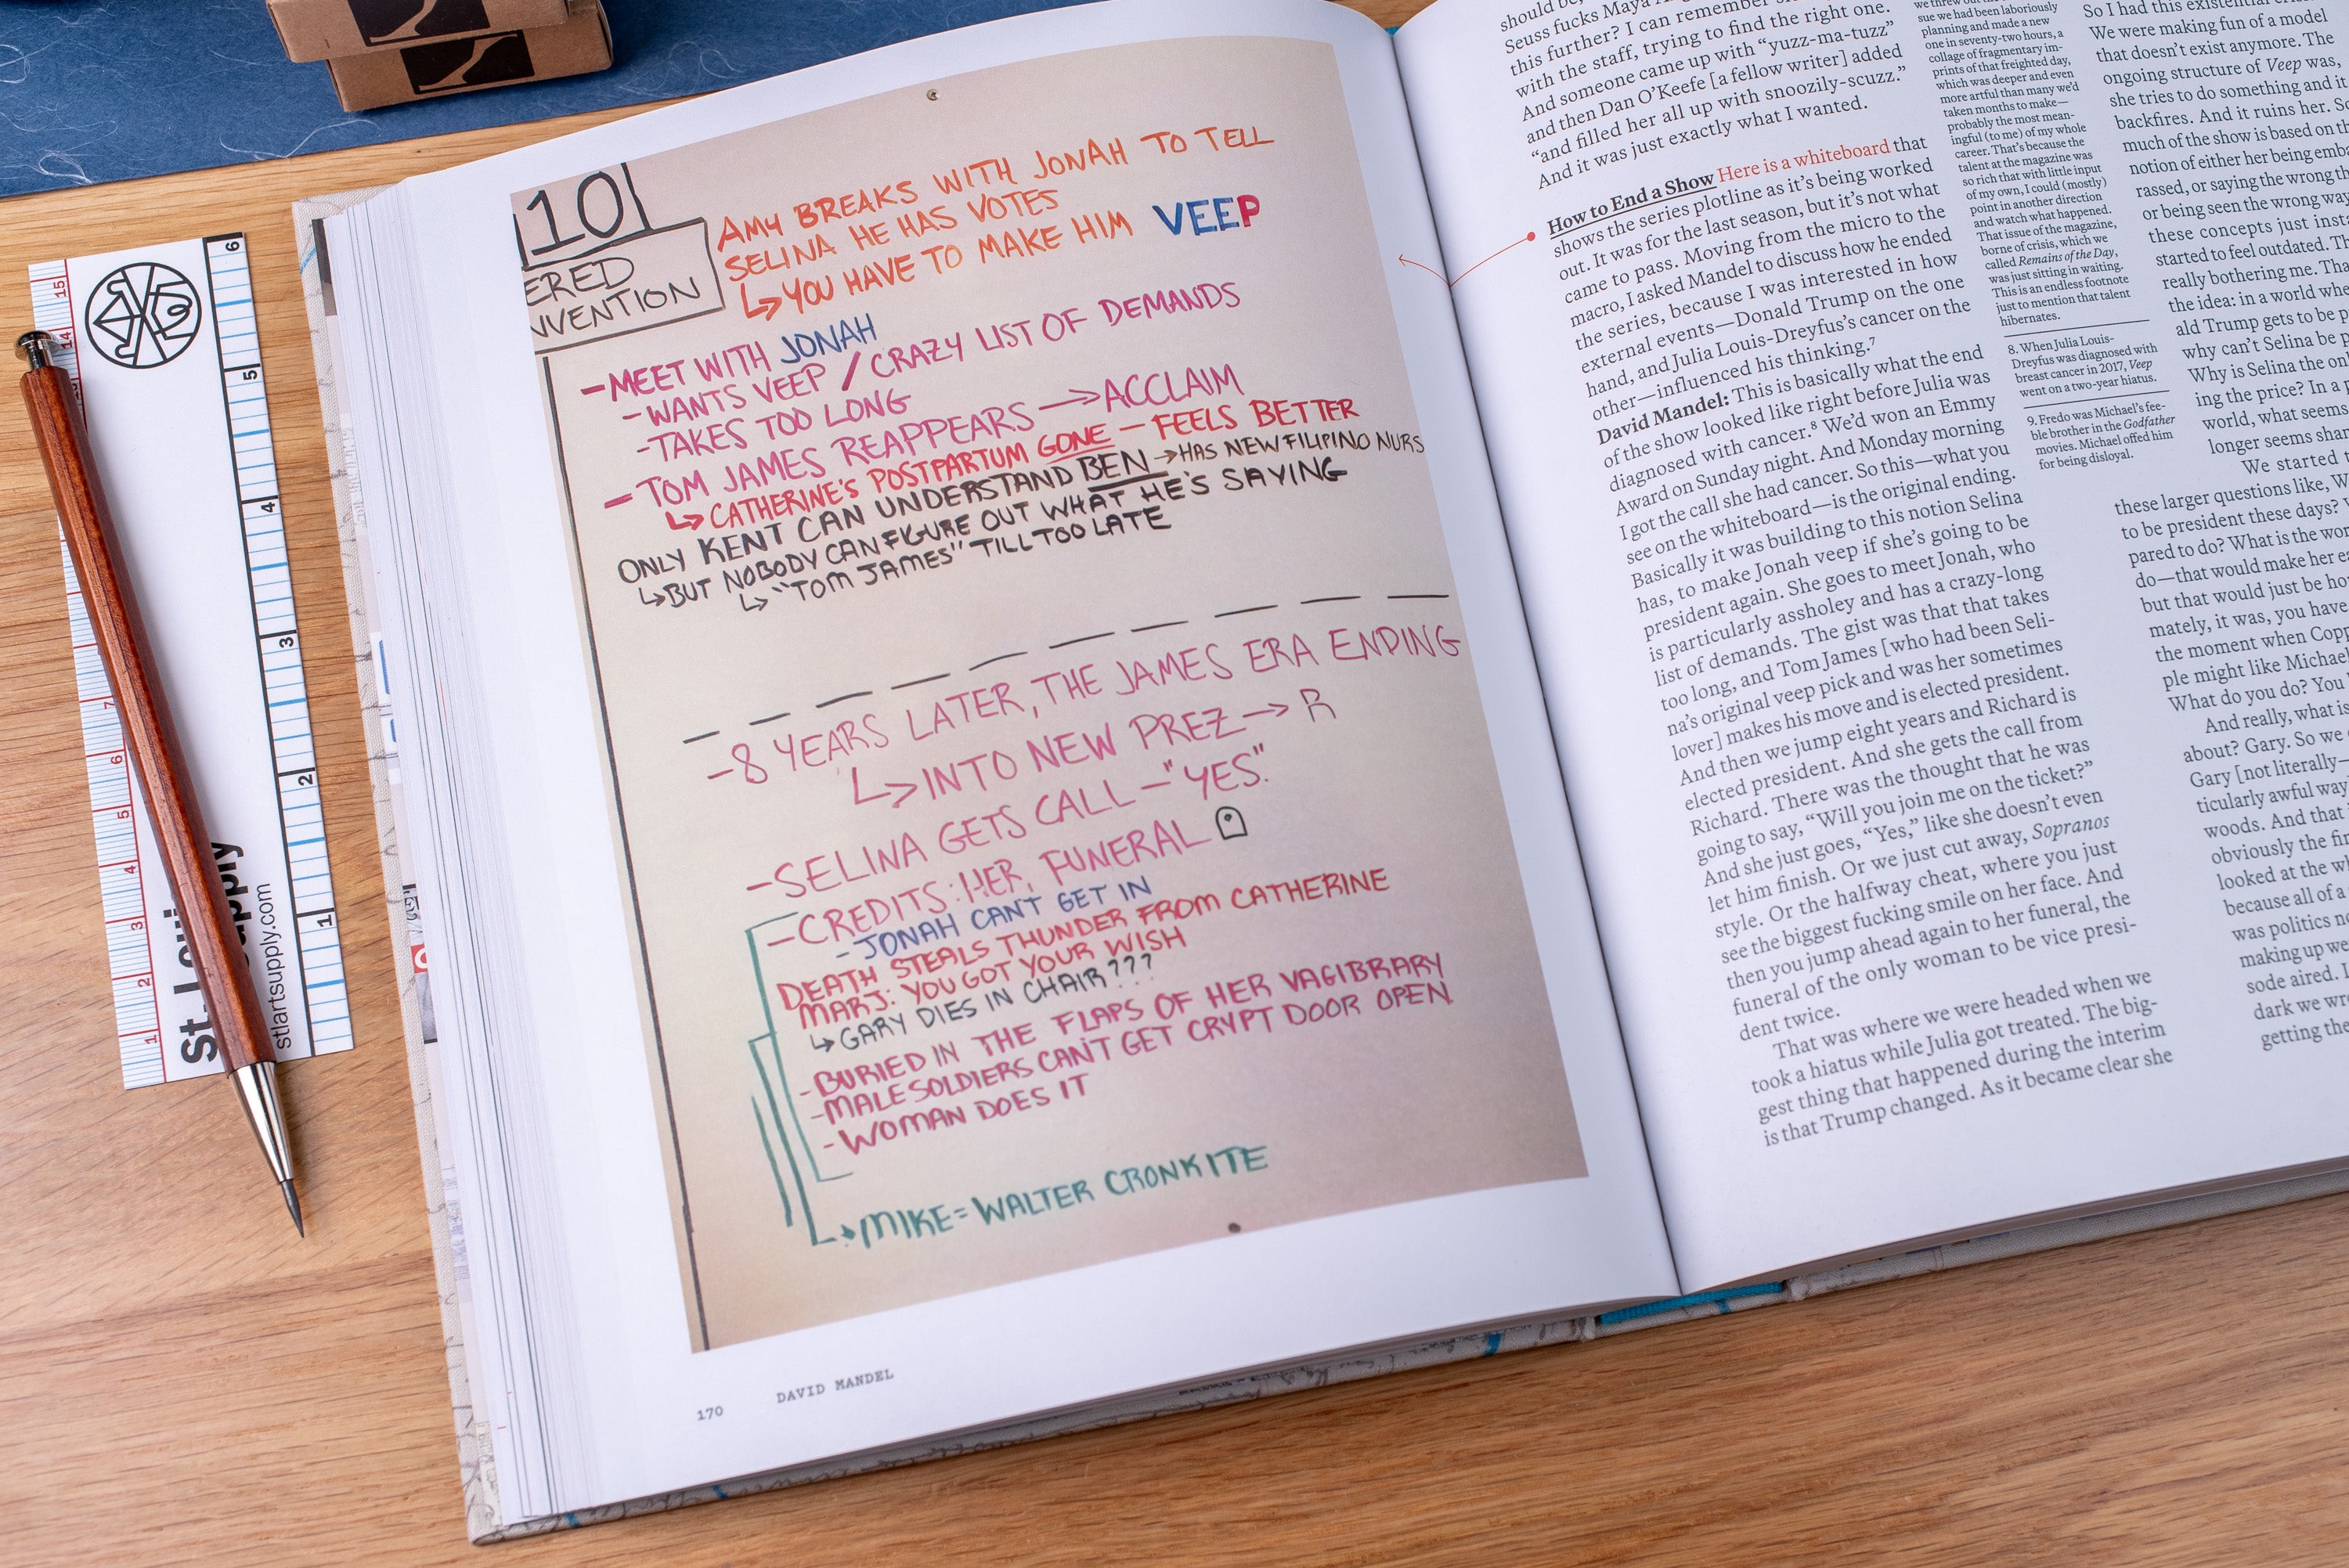 10
ERED
NVENTION
AMY BREAKS WITH JONAH TO TELL
SELINA HE HAS VOTES
↳YOU HAVE TO MAKE HIM VEEP
-MEET WITH JONAH
-WANTS VEEP / CRAZY LIST OF DEMANDS
-TAKES TOO LONG
-TOM JAMES REAPPEARS →ACCLAIM
↳CATHERINE'S POSTPARTUM GONE - FEELS BETTER
ONLY KENT CAN UNDERSTAND BEN →HAS NEW FILIPINO NURS
↳BUT NOBODY CAN FIGURE OUT WHAT HE'S SAYING
↳"TOM JAMES" TILL TOO LATE
-8 YEARS LATER, THE JAMES ERA ENDING
↳INTO NEW PREZ→R
-SELINA GETS CALL-"YES".
-CREDITS: HER, FUNERAL
-JONAH CAN'T GET IN
DEATH STEALS THUNDER FROM CATHERINE
MARJ: YOU GOT YOUR WISH
↳GARY DIES IN CHAIR???
-BURIED IN THE FLAPS OF HER VAGIBRARY
-MALE SOLDIERS CAN'T GET CRYPT DOOR OPEN.
-WOMAN DOES IT
→MIKE=WALTER CRONKITE
170 DAVID MANDEL
Seuss fucks Maya
this further? I can remember
with the staff, trying to find the right one.
And someone came up with "yuzz-ma-tuzz"
and then Dan O'Keefe [a fellow writer] added
"and filled her all up with snoozily-scuzz."
And it was just exactly what I wanted.
How to End a Show Here is a whiteboard that
shows the series plotline as it's being worked
out. It was for the last season, but it's not what
came to pass. Moving from the micro to the
macro, I asked Mandel to discuss how he ended
the series, because I was interested in how
external events—Donald Trump on the one
hand, and Julia Louis-Dreyfus's cancer on the
other—influenced his thinking.7
David Mandel: This is basically what the end
of the show looked like right before Julia was
diagnosed with cancer.8 We'd won an Emmy
Award on Sunday night. And Monday morning
I got the call she had cancer. So this—what you
see on the whiteboard—is the original ending.
Basically it was building to this notion Selina
has, to make Jonah veep if she's going to be
president again. She goes to meet Jonah, who
is particularly assholey and has a crazy-long
list of demands. The gist was that that takes
too long, and Tom James [who had been Seli-
na's original veep pick and was her sometimes
lover] makes his move and is elected president.
And then we jump eight years and Richard is
elected president. And she gets the call from
Richard. There was the thought that he was
going to say, "Will you join me on the ticket?"
And she just goes, "Yes," like she doesn't even
let him finish. Or we just cut away, Sopranos
style. Or the halfway cheat, where you just
see the biggest fucking smile on her face. And
then you jump ahead again to her funeral, the
funeral of the only woman to be vice presi-
dent twice.
That was where we were headed when we
took a hiatus while Julia got treated. The big-
gest thing that happened during the interim
is that Trump changed. As it became clear she
sue we had been laboriously
planning and made a new
one in seventy-two hours, a
collage of fragmentary im-
prints of that freighted day,
which was deeper and even
more artful than many we'd
taken months to make—
probably the most mean-
ingful (to me) of my whole
career. That's because the
talent at the magazine was
so rich that with little input
of my own, I could (mostly)
point in another direction
and watch what happened.
That issue of the magazine,
borne of crisis, which we
called Remains of the Day,
was just sitting in waiting.
This is an endless footnote
just to mention that talent
hibernates.
8. When Julia Louis-
Dreyfus was diagnosed with
breast cancer in 2017, Veep
went on a two-year hiatus.
9. Fredo was Michael's fee-
ble brother in the Godfather
movies. Michael offed him
for being disloyal.
So I had this existential
We were making fun of a model
that doesn't exist anymore. The
ongoing structure of Veep was,
she tries to do something and it
backfires. And it ruins her. So
much of the show is based on th
notion of either her being emba
rassed, or saying the wrong th
or being seen the wrong way
these concepts just inst
started to feel outdated. Th
really bothering me. Tha
the idea: in a world whe
ald Trump gets to be p
why can't Selina be p
Why is Selina the on
ing the price? In a p
world, what seems
longer seems shar
We started t
these larger questions like, W
to be president these days?
pared to do? What is the wor
do—that would make her ea
but that would just be ho
mately, it was, you have
the moment when Copp
ple might like Michael
What do you do? You
And really, what is
about? Gary. So we
Gary [not literally—
ticularly awful way
woods. And that
obviously the fin
looked at the wh
because all of a
was politics no
making up we
sode aired. I
dark we wro
getting the
St. Louis
Supply
stlartsupply.com
6
5
4
3
2
1
15
14
7
6
5
4
3
2
1